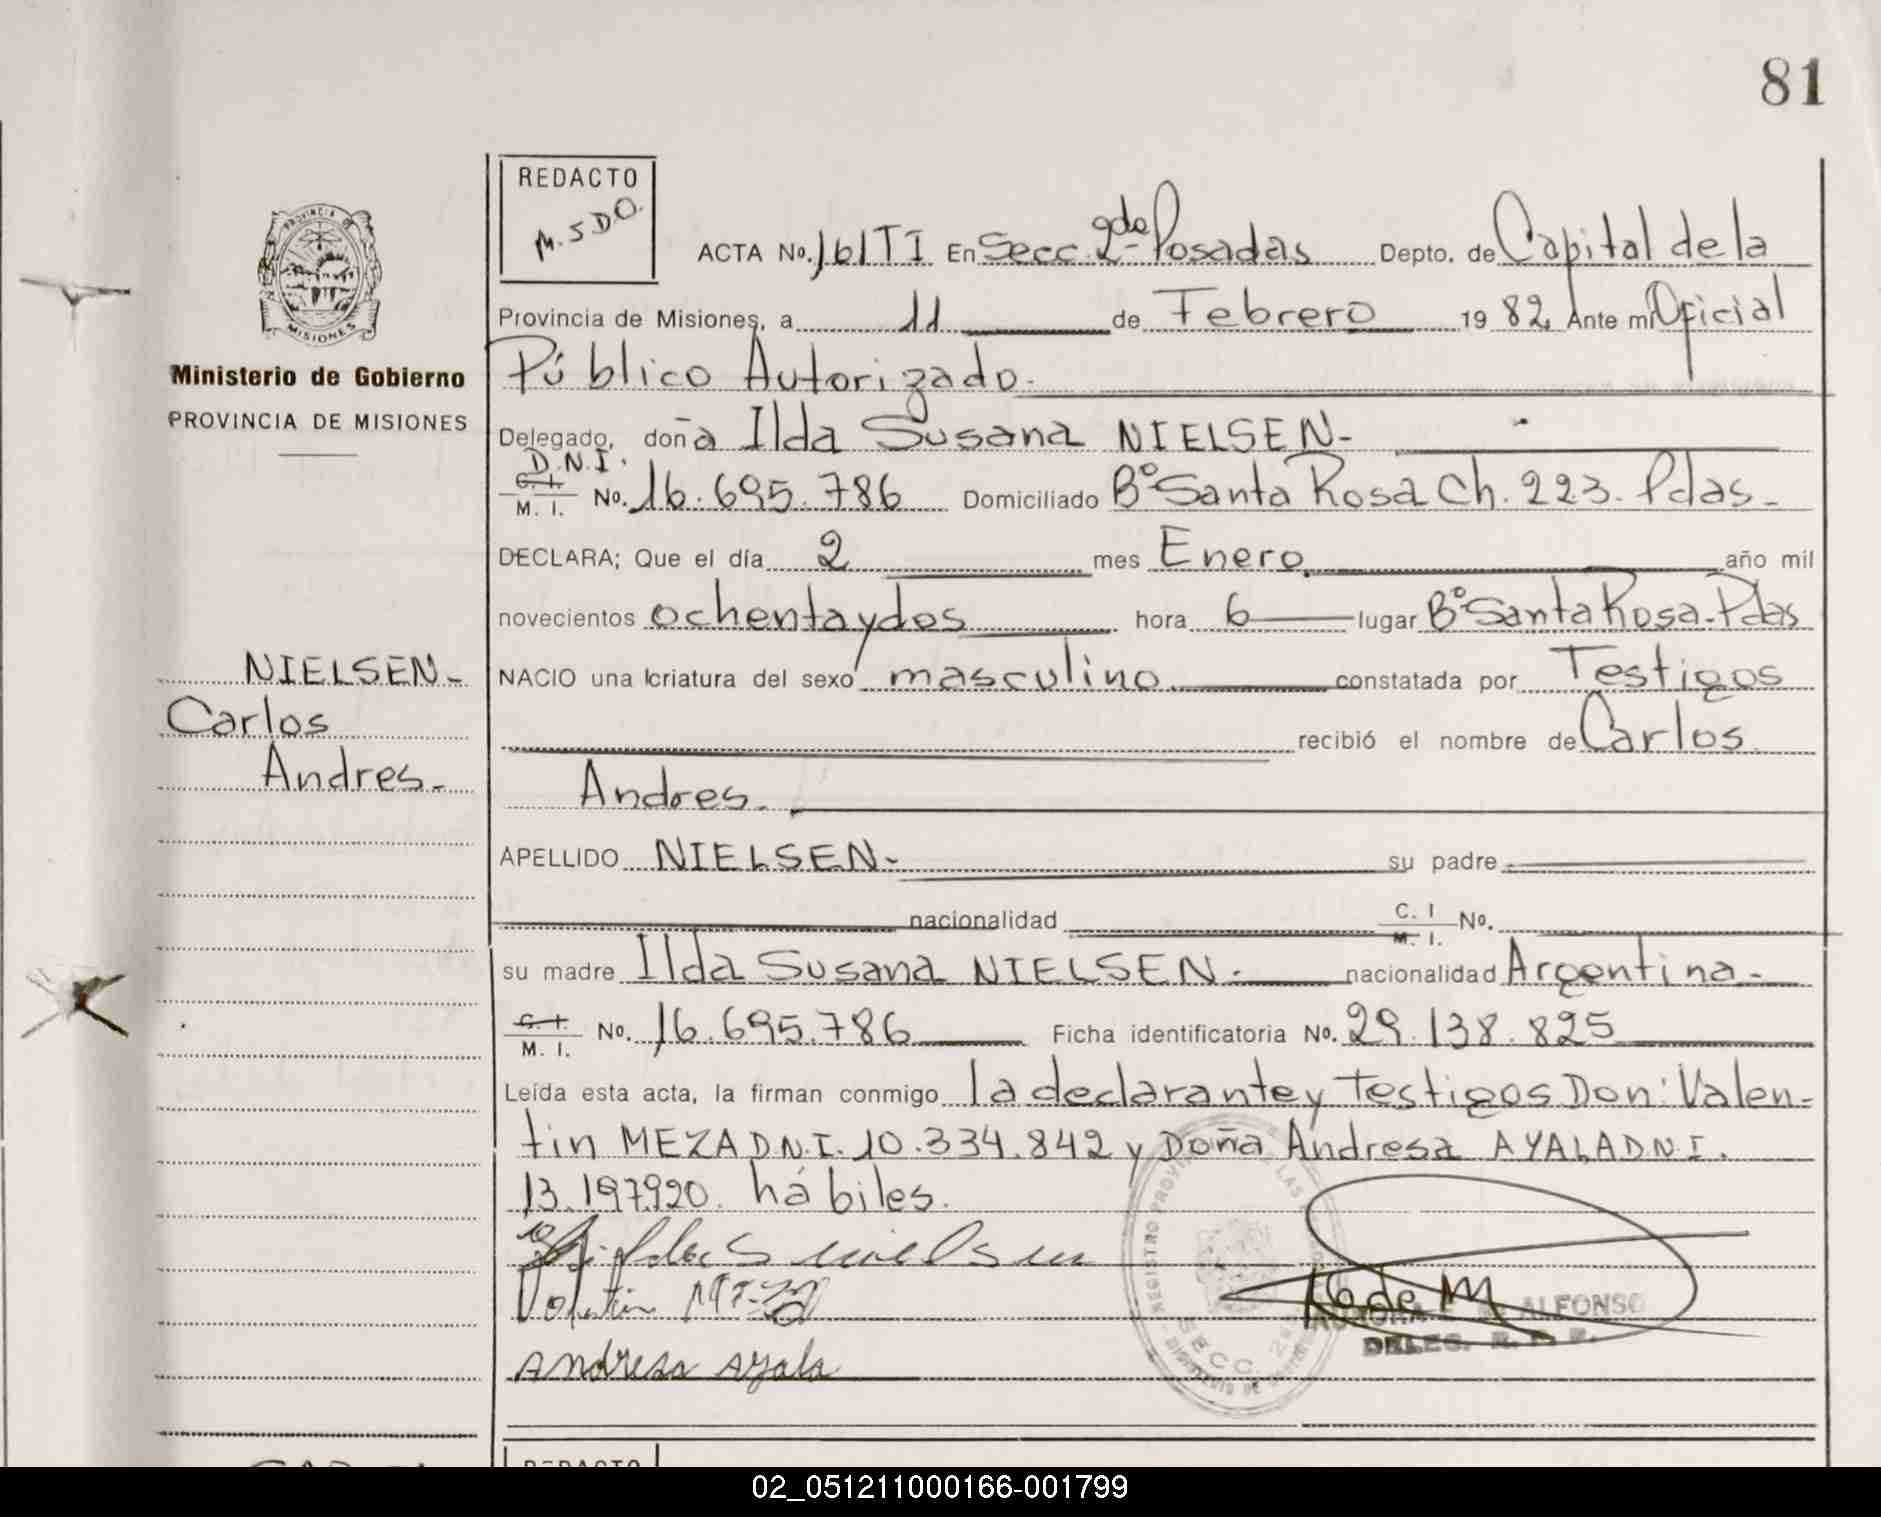 81
REDACTO
M.S.D.O.
ACTA No. 161 TI En Secc. 2da Posadas Depto. de Capital de la
Provincia de Misiones, a 11 de Febrero 1982 Ante mi Oficial
Público Autorizado.
Delegado, doña Ilda Susana NIELSEN-
D.N.I.
C. I.
M. I. No. 16.695.786 Domiciliado Bº Santa Rosa Ch. 223. Pdas-
DECLARA; Que el día 2 mes Enero año mil
novecientos ochenta y dos hora 6 lugar Bº Santa Rosa-Pdas
NACIO una criatura del sexo masculino constatada por Testigos
recibió el nombre de Carlos
Andres-
APELLIDO NIELSEN- su padre
nacionalidad C. I
M. I. No.
su madre Ilda Susana NIELSEN- nacionalidad Argentina-
C. I.
M. I. No. 16.695.786 Ficha identificatoria No. 29.138.825
Leída esta acta, la firman conmigo la declarante y Testigos Don: Valen-
tin MEZA D.N.I. 10.334.842 y Doña Andresa AYALA DNI.
13.197.920. hábiles.
Valentin
Andresa Ayala
ALFONSO
DELEG.
REGISTRO PROVI
SECC. 2
PROVINCIA DE
MISIONES
Ministerio de Gobierno
PROVINCIA DE MISIONES
NIELSEN-
Carlos
Andres-
REDACTO
02_051211000166-001799